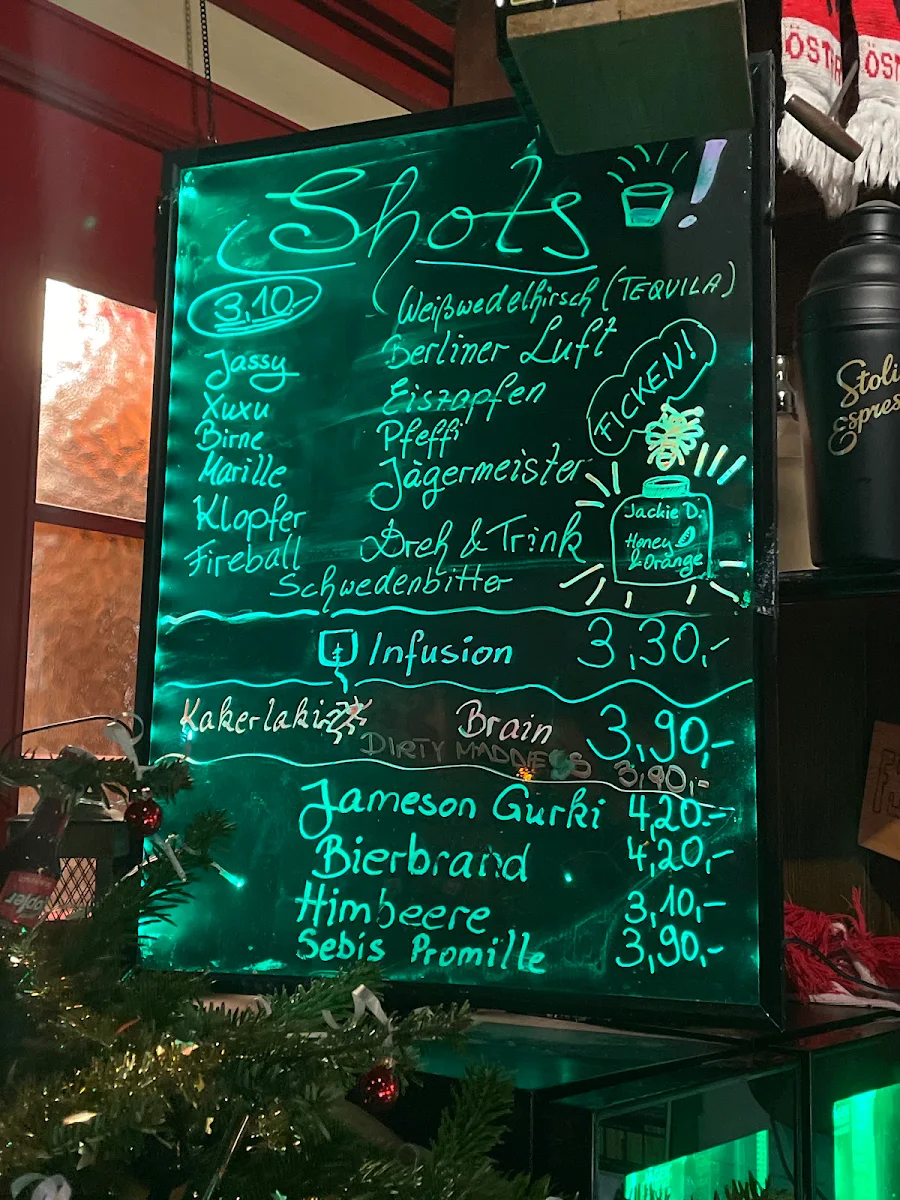 ÖST
ÖST
Shots !
3,10,-
Weißwedelhirsch (TEQUILA)
Jassy
Berliner Luft
Xuxu
Eiszapfen
FICKEN!
Birne
Pfeffi
Marille
Jägermeister
Klopfer
Jackie D.
Honey
& Orange
Fireball
Dreh & Trink
Schwedenbitter
Infusion 3,30,-
Kakerlaki Brain 3,90,-
DIRTY MADDNESS 3,90,-
Jameson Gurki 4,20.-
Bierbrand 4,20,-
Himbeere 3,10,-
Sebis Promille 3,90,-
Stoli
Espres